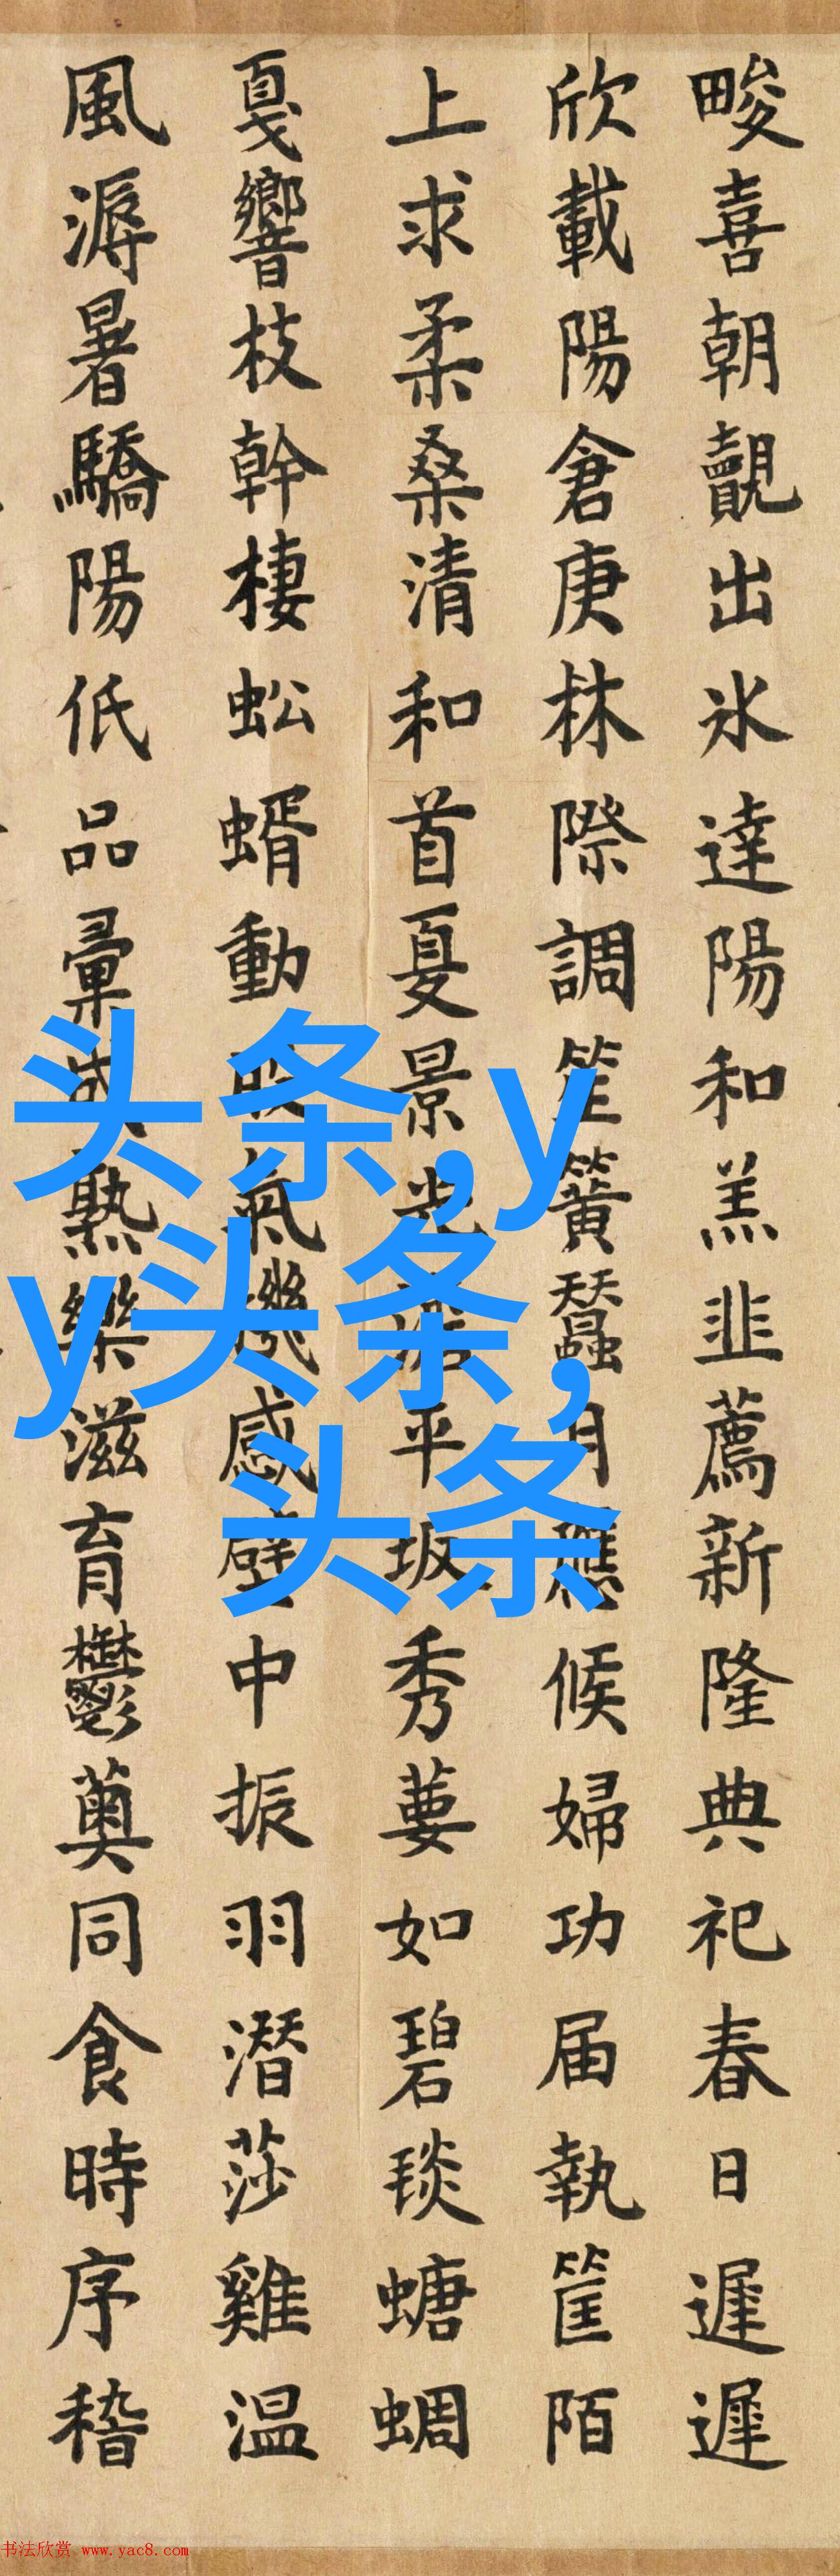 畯喜朝覿出冰達陽和羔韭薦新隆典祀春日遲遲
欣載陽倉庚林際調笙簧蠶月應候婦功届執筐陌
上求柔桑清和首夏景光平坂秀葽如碧琰螗蜩
戛響枝幹棲蚣蝑動股氣機感壁中振羽潛莎雞温
風溽暑驕陽低品彙成熟樂滋育鬱薁同食時序稽
头条,y
y头条,
头条
书法欣赏 www.yac8.com